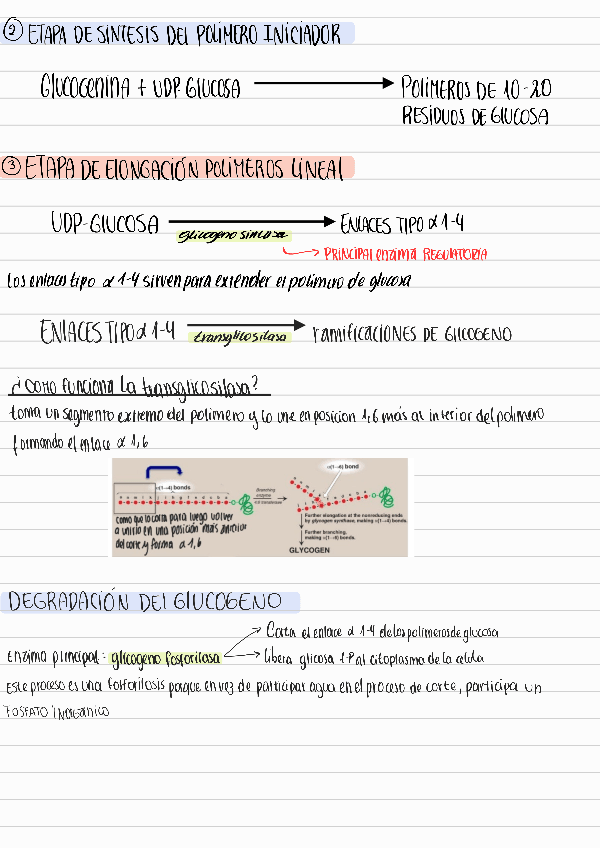 ② ETAPA DE SINTESIS DEL POLIMERO INICIADOR
GLUCOGENINA + UDP GLUCOSA → POLIMEROS DE 10-20
RESIDUOS DE GLUCOSA
③ ETAPA DE ELONGACIÓN POLIMEROS LINEAL
UDP-GLUCOSA → ENLACES TIPO α 1-4
glucogeno sintasa
→ PRINCIPAL enzima REGULATORIA
Los enlaces tipo α 1-4 sirven para extender el polimero de glucosa
ENLACES TIPO α 1-4 → ramificaciones DE GLUCOGENO
transglicosilasa
¿como funciona la transglicosilasa?
toma un segmento extremo del polimero y lo une en posicion 1,6 más al interior del polimero
formando el enlace α 1,6
α(1→6) bond
α(1→4) bonds
Branching
enzyme
como que lo corta para luego volver
a unirlo en una posición más anterior
del corte y forma α 1,6
Further elongation at the nonreducing ends
by glycogen synthase, making α(1→4) bonds.
Further branching,
making α(1→6) bonds.
GLYCOGEN
DEGRADACIÓN DEL GLUCOGENO
→ Corta el enlace α 1-4 de los polimeros de glucosa
Enzima principal: glicogeno fosforilasa
→ libera glicosa 1-P al citoplasma de la celula
Este proceso es una fosforilosis porque en vez de participar agua en el proceso de corte, participa un
FOSFATO INORGANICO